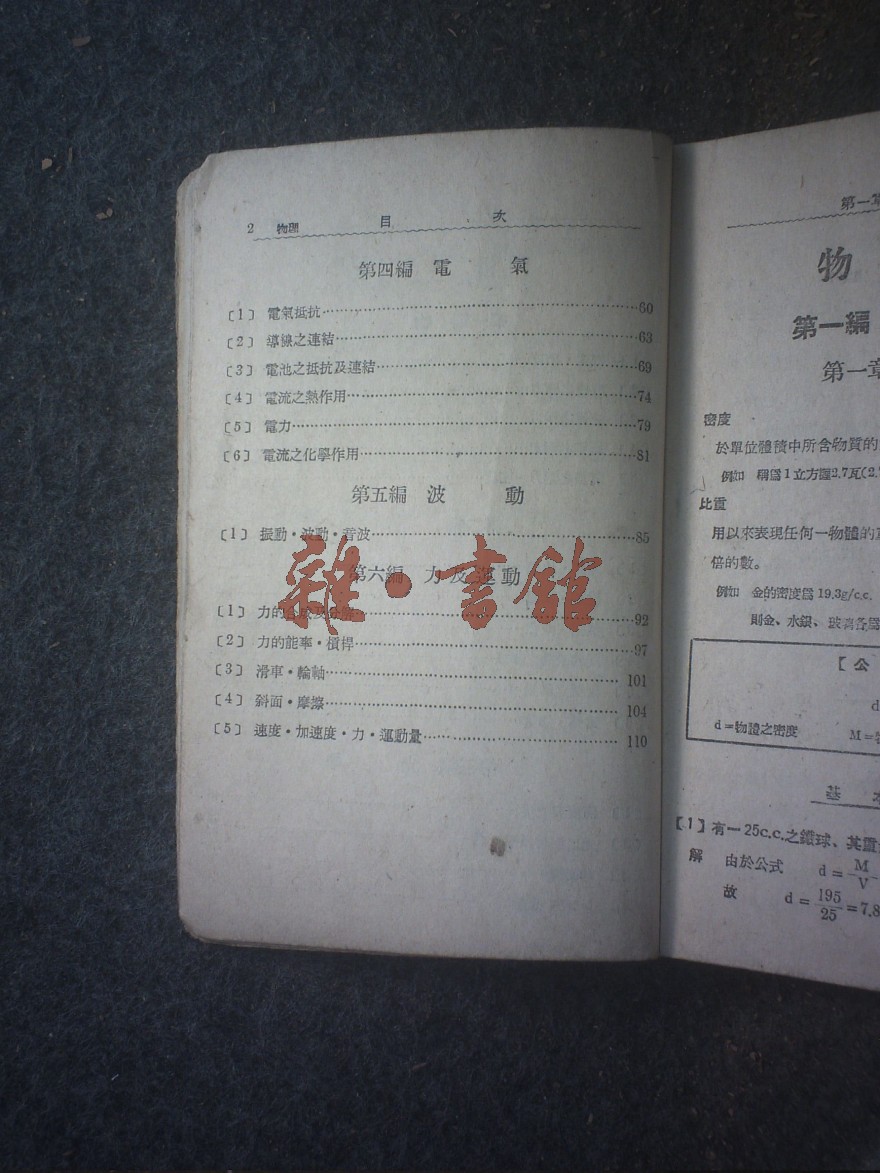 2 物理 目 次
第四編 電 氣
〔1〕 電氣抵抗 60
〔2〕 導線之連結 63
〔3〕 電池之抵抗及連結 69
〔4〕 電流之熱作用 74
〔5〕 電力 79
〔6〕 電流之化學作用 81
第五編 波 動
〔1〕 振動・波動・音波 85
第六編 力及運動
〔1〕 力的 92
〔2〕 力的能率・槓桿 97
〔3〕 滑車・輪軸 101
〔4〕 斜面・摩擦 104
〔5〕 速度・加速度・力・運動量 110
雜・書館
第一章
物
第一編
第一章
密度
於單位體積中所含物質的
例如 1立方 2.7瓦(2.7
比重
用以來表現任何一物體的
倍的數。
例如 金的密度爲 19.3g/c.c.
則金、水銀、玻璃各爲
【公
d
d=物體之密度 M=
基 本
〔1〕有一25c.c.之鐵球、其重
解 由於公式 d = M/V
故 d = 195/25 = 7.8